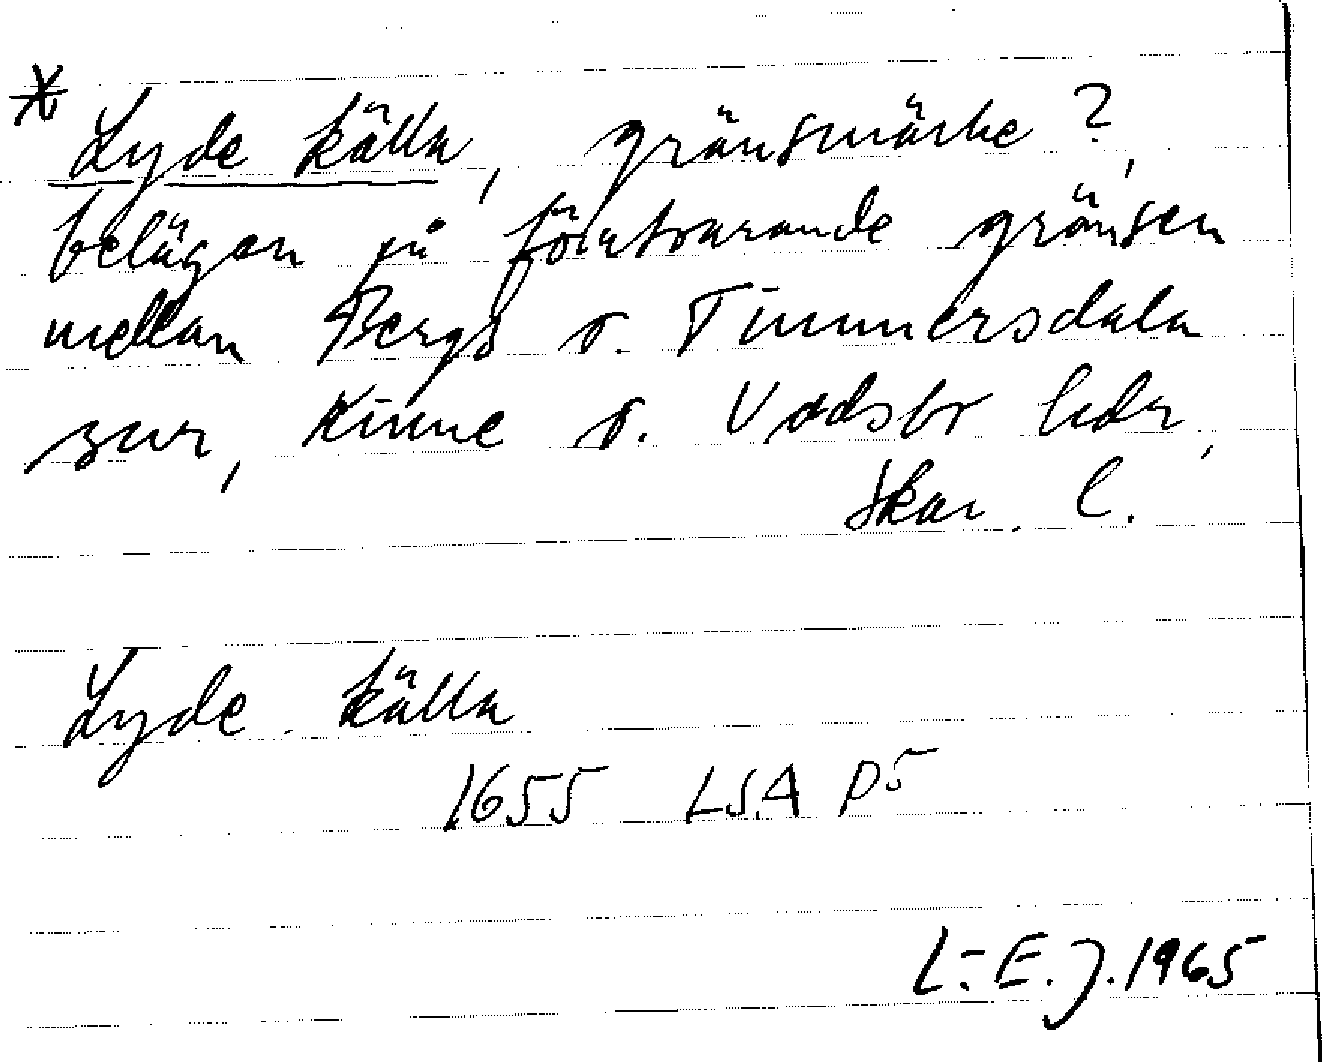 * Lyde källa, gränsmärke?,
belägen på förutvarande gränsen
mellan Bergs o. Timmersdala
snr, Kinne o. Vadsbo hdr,
Skar. l.
Lyde källa
1655 LSA P5
L-E.J. 1965